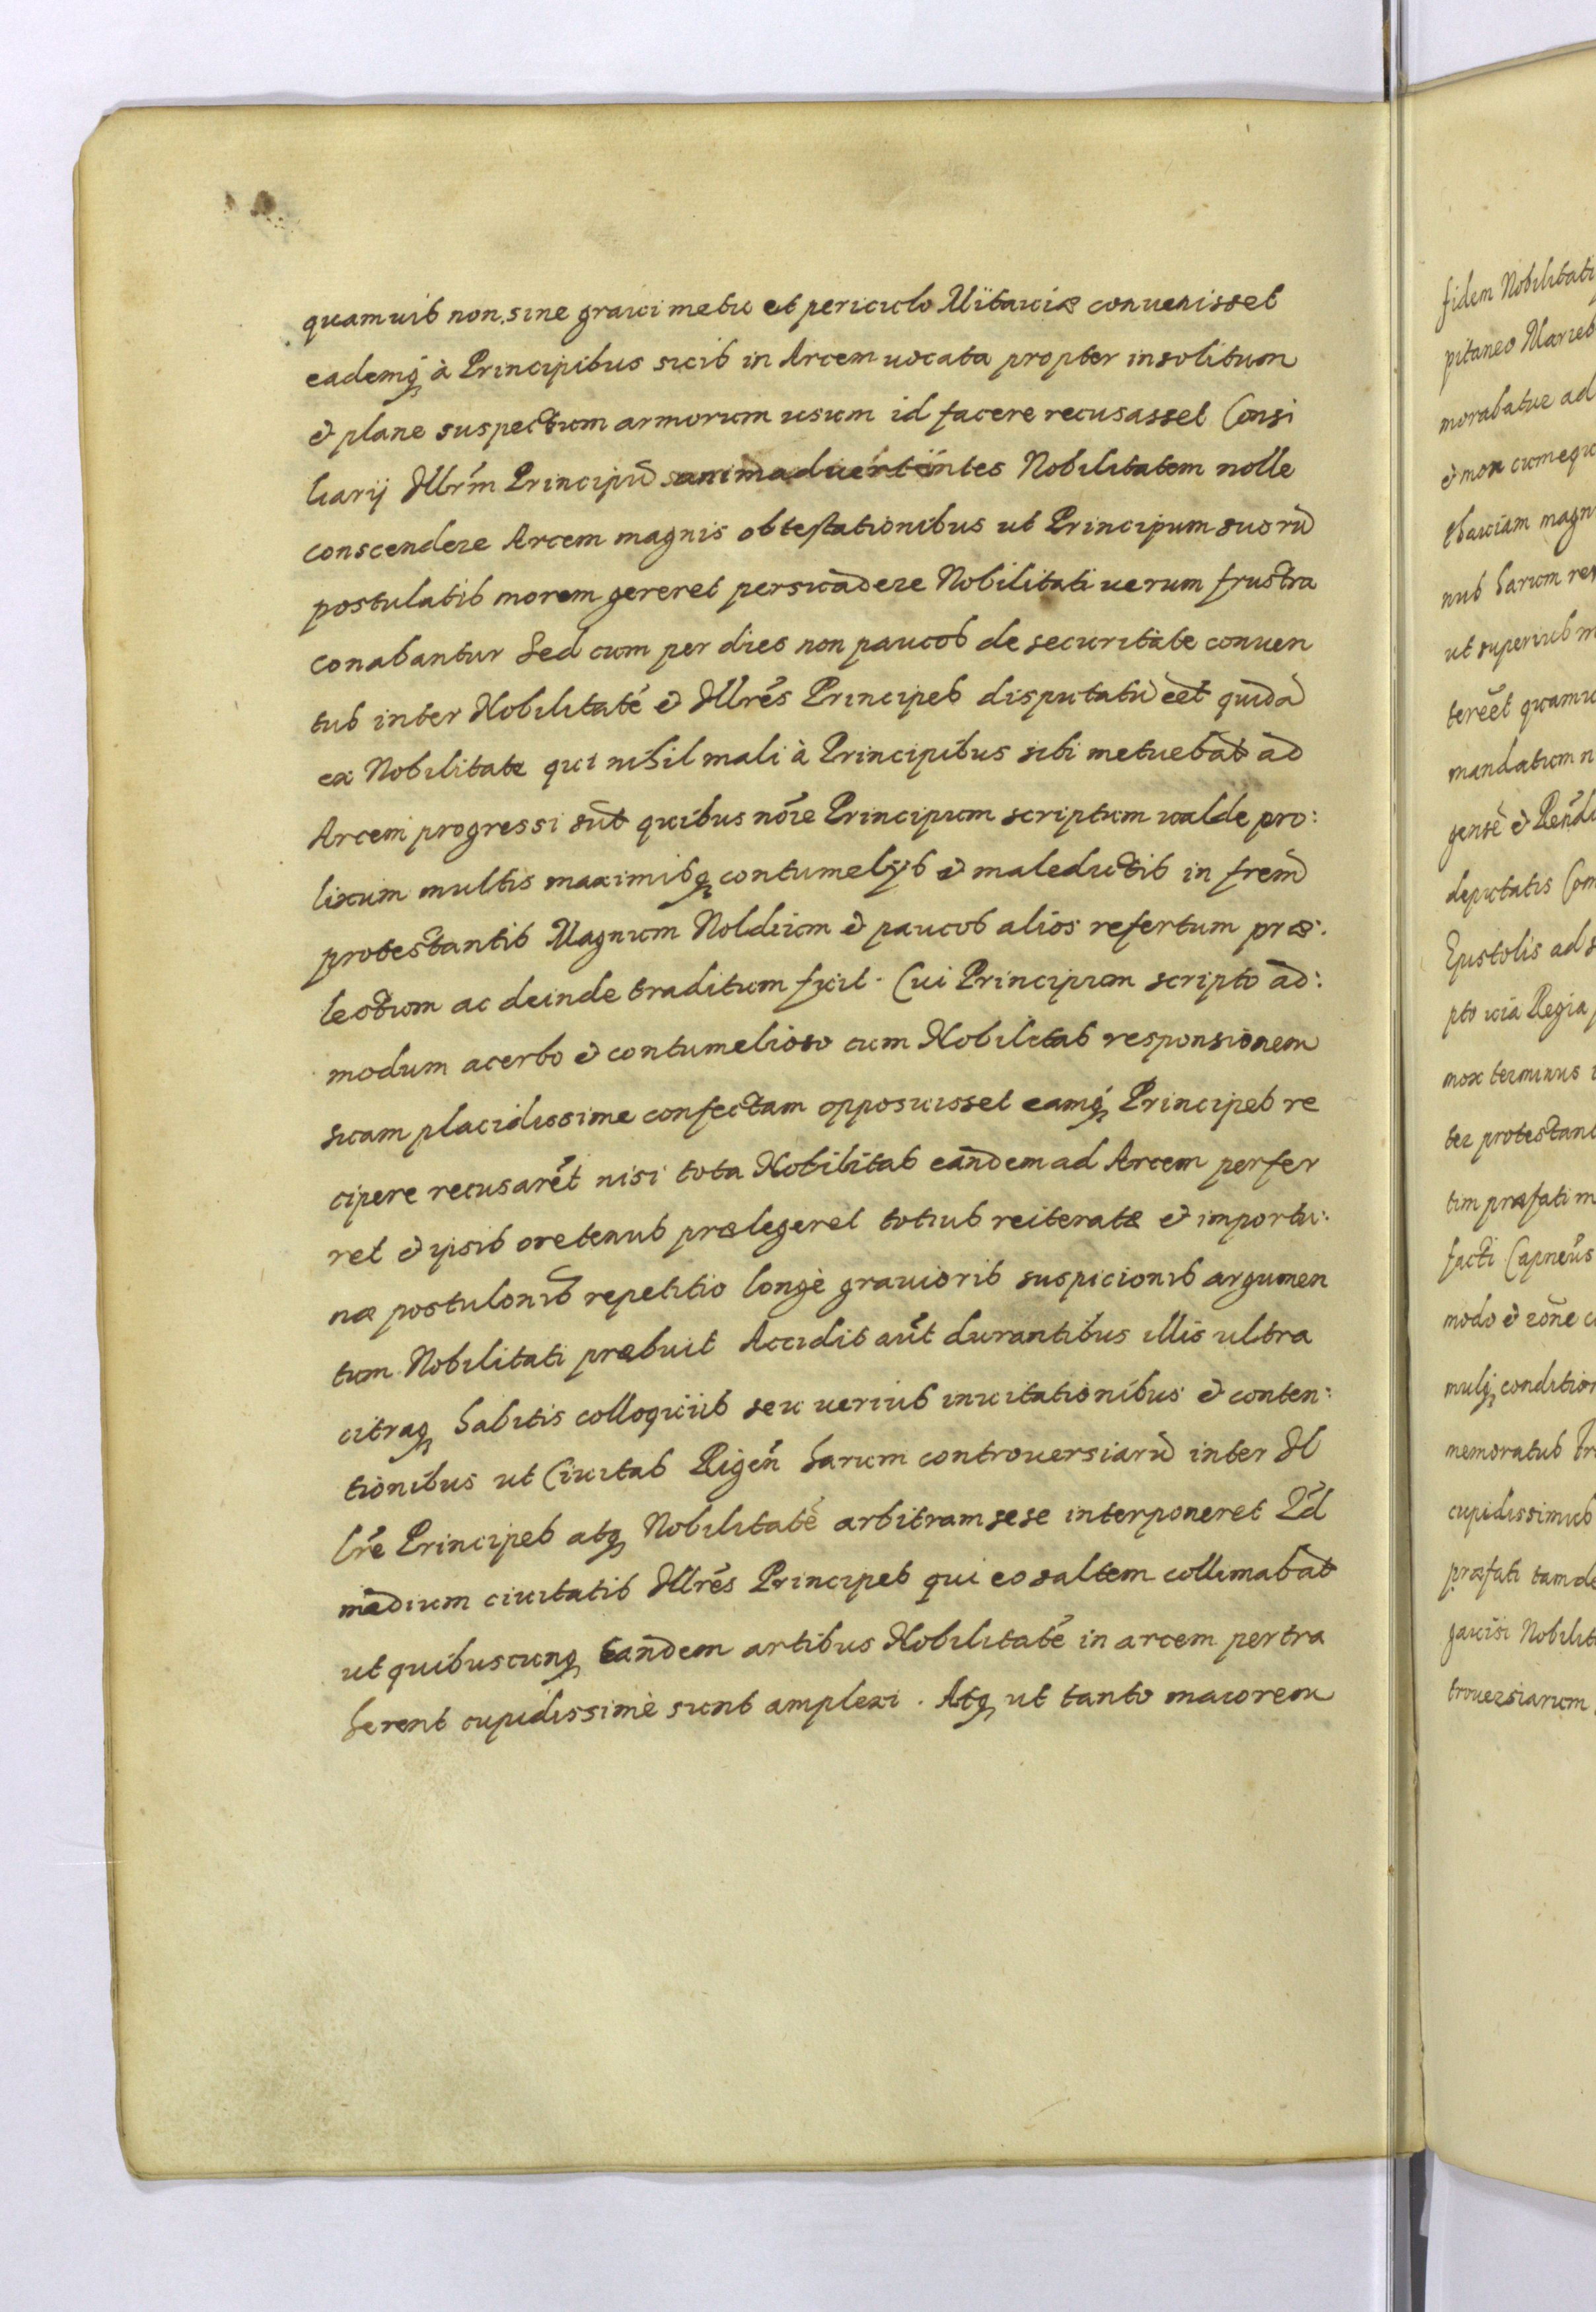 quamuis non sine graui metu et periculo Mitauiæ conuenisset
eademq́ à Principibus suis in Arcem uocata propter insolitum
& plane suspectum armorum usum id facere recusasset Consi
liarij Illrḿ Principū animaduertentes Nobilitatem nolle
conscendere Arcem magnis obtestationibus ut Principum suorū
postulatis morem gereret persuadere Nobilitati uerum frustra
conabantur Sed cum per dies non paucos de securitate conuen
tus inter Nobilitatē & Illrés Principes disputatū eēt quidā
ex Nobilitate qui nihil mali à Principibus sibi metuebāt ad
Arcem progressi sūt quibus nōīe Principum scriptum ualde pro:
lixum multis maximisq contumelijs & maledictis in frem̄
protestantis Magnum Noldium & paucos alios refertum præ:
lectum ac deinde traditum fuit. Cui Principum scripto ad:
modum acerbo & contumelioso cum Nobilitas responsionem
suam placidissime confectam opposuisset eamq́ Principes re
cipere recusarēt nisi tota Nobilitas eandem ad Arcem perfer
ret & ipsis oretenus prælegeret totius reiteratæ & importu:
næ postulonis̄ repetitio longè grauioris suspicionis argumen
tum Nobilitati præbuit Accidit aūt durantibus illis ultra
citraq habitis colloquiis seu uerius inuitationibus & conten:
tionibus ut Ciuitas Rigēn harum controuersiarū inter Il
lrē Principes atq Nobilitatē arbitram sese interponeret Id
medium ciuitatis Illrés Principes qui eo saltem collimabāt
ut quibuscunq tandem artibus Nobilitatē in arcem pertra
herent cupidissimè sunt amplexi. Atq ut tanto maiorem
fidem Nobilitati
pitaneo
morabatur ad
& mox
magn
nus harum
ut superius
terēet quamu
mandatum n
gensē &
deputatis Com
Epistolis ad
pto uia Regia
mox terminus
ter protestant
tim præfati m
facti
modo &
condition
memoratus
cupidissimus
præfati tam de
Nobilit
trouersiarum